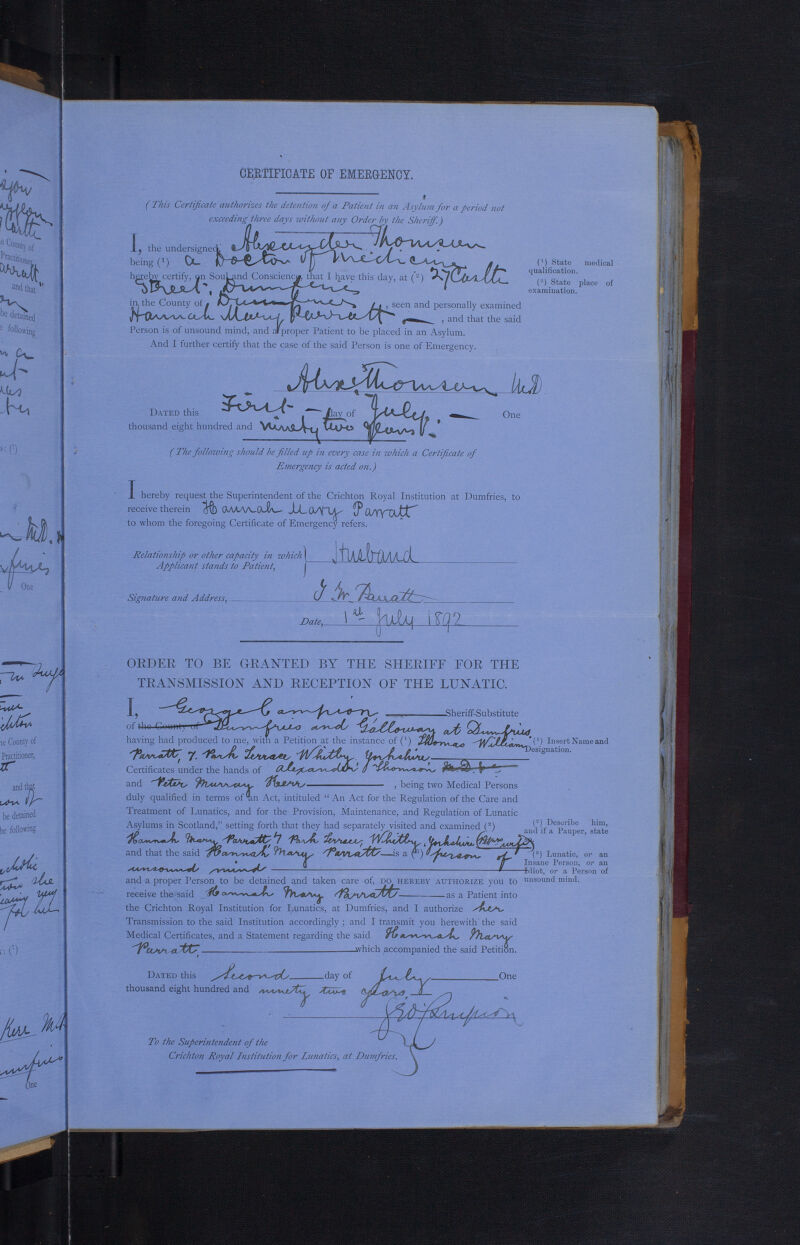 CERTIFICATE OF EMERGENCY.
( This Certificate authorizes the detention of a Patient in an Asylum for a period not
exceeding three days without any Order by the Sheriff.)
I, the undersigned, Alexander Thomson
being (¹) a Doctor of Medicine
hereby certify, on Soul and Conscience, that I have this day, at (²) 27 Castle
Street, Dumfries
in the County of Dumfries, seen and personally examined
Hannah Mary Parratt — , and that the said
Person is of unsound mind, and a proper Patient to be placed in an Asylum.
And I further certify that the case of the said Person is one of Emergency.
(¹) State medical
qualification.
(²) State place of
examination.
Alex. Thomson MD
DATED this First — day of July — One
thousand eight hundred and ninety two years.
( The following should be filled up in every case in which a Certificate of
Emergency is acted on.)
I hereby request the Superintendent of the Crichton Royal Institution at Dumfries, to
receive therein Hannah Mary Parratt
to whom the foregoing Certificate of Emergency refers.
Relationship or other capacity in which
Applicant stands to Patient,
Husband
Signature and Address, T. W. Parratt
Date, 1st July 1892
ORDER TO BE GRANTED BY THE SHERIFF FOR THE
TRANSMISSION AND RECEPTION OF THE LUNATIC.
I, George Campion Sheriff-Substitute
of the County of Dumfries and Galloway at Dumfries,
having had produced to me, with a Petition at the instance of (¹) Thomas William
Parratt, 7. Park Terrace Whitby, Yorkshire
Certificates under the hands of Alexander Thomson
and Peter Murray Kerr , being two Medical Persons
duly qualified in terms of an Act, intituled " An Act for the Regulation of the Care and
Treatment of Lunatics, and for the Provision, Maintenance, and Regulation of Lunatic
Asylums in Scotland," setting forth that they had separately visited and examined (²)
Hannah Mary Parratt, 7 Park Terrace, Whitby, Yorkshire
and that the said Hannah Mary Parratt is a (³) person of
unsound mind
and a proper Person to be detained and taken care of, DO HEREBY AUTHORIZE you to
receive the said Hannah Mary Parratt as a Patient into
the Crichton Royal Institution for Lunatics, at Dumfries, and I authorize her
Transmission to the said Institution accordingly ; and I transmit you herewith the said
Medical Certificates, and a Statement regarding the said Hannah Mary
Parratt, which accompanied the said Petition.
(¹) Insert Name and
Designation.
(²) Describe him,
and if a Pauper, state
(³) Lunatic, or an
Insane Person, or an
Idiot, or a Person of
unsound mind.
DATED this Second day of July One
thousand eight hundred and ninety two years.
Campion
To the Superintendent of the
Crichton Royal Institution for Lunatics, at Dumfries.